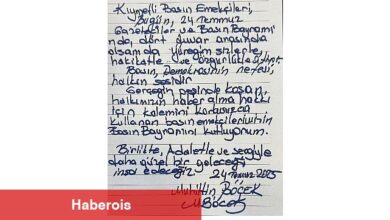 Kıymetli Basın Emekçileri,
Bugün, 24 Temmuz
Gazeteciler ve Basın Bayramı'
nda, dört duvar arasında
olsamda yüreğim sizlerle,
hakikatle ve özgürlükledir.
Basın, Demokrasinin nefesi,
halkın sesidir
Gerçeğin peşinde koşan,
halkımızın haber alma hakkı
için kalemini korkusuzca
kullanan basın emekçilerinin
Basın Bayramını kutluyorum.
Birlikte, Adaletle ve sevgiyle
daha güzel bir geleceği
inşa edeceğiz
24 Temmuz 2025
Muhittin BÖCEK
Haberois